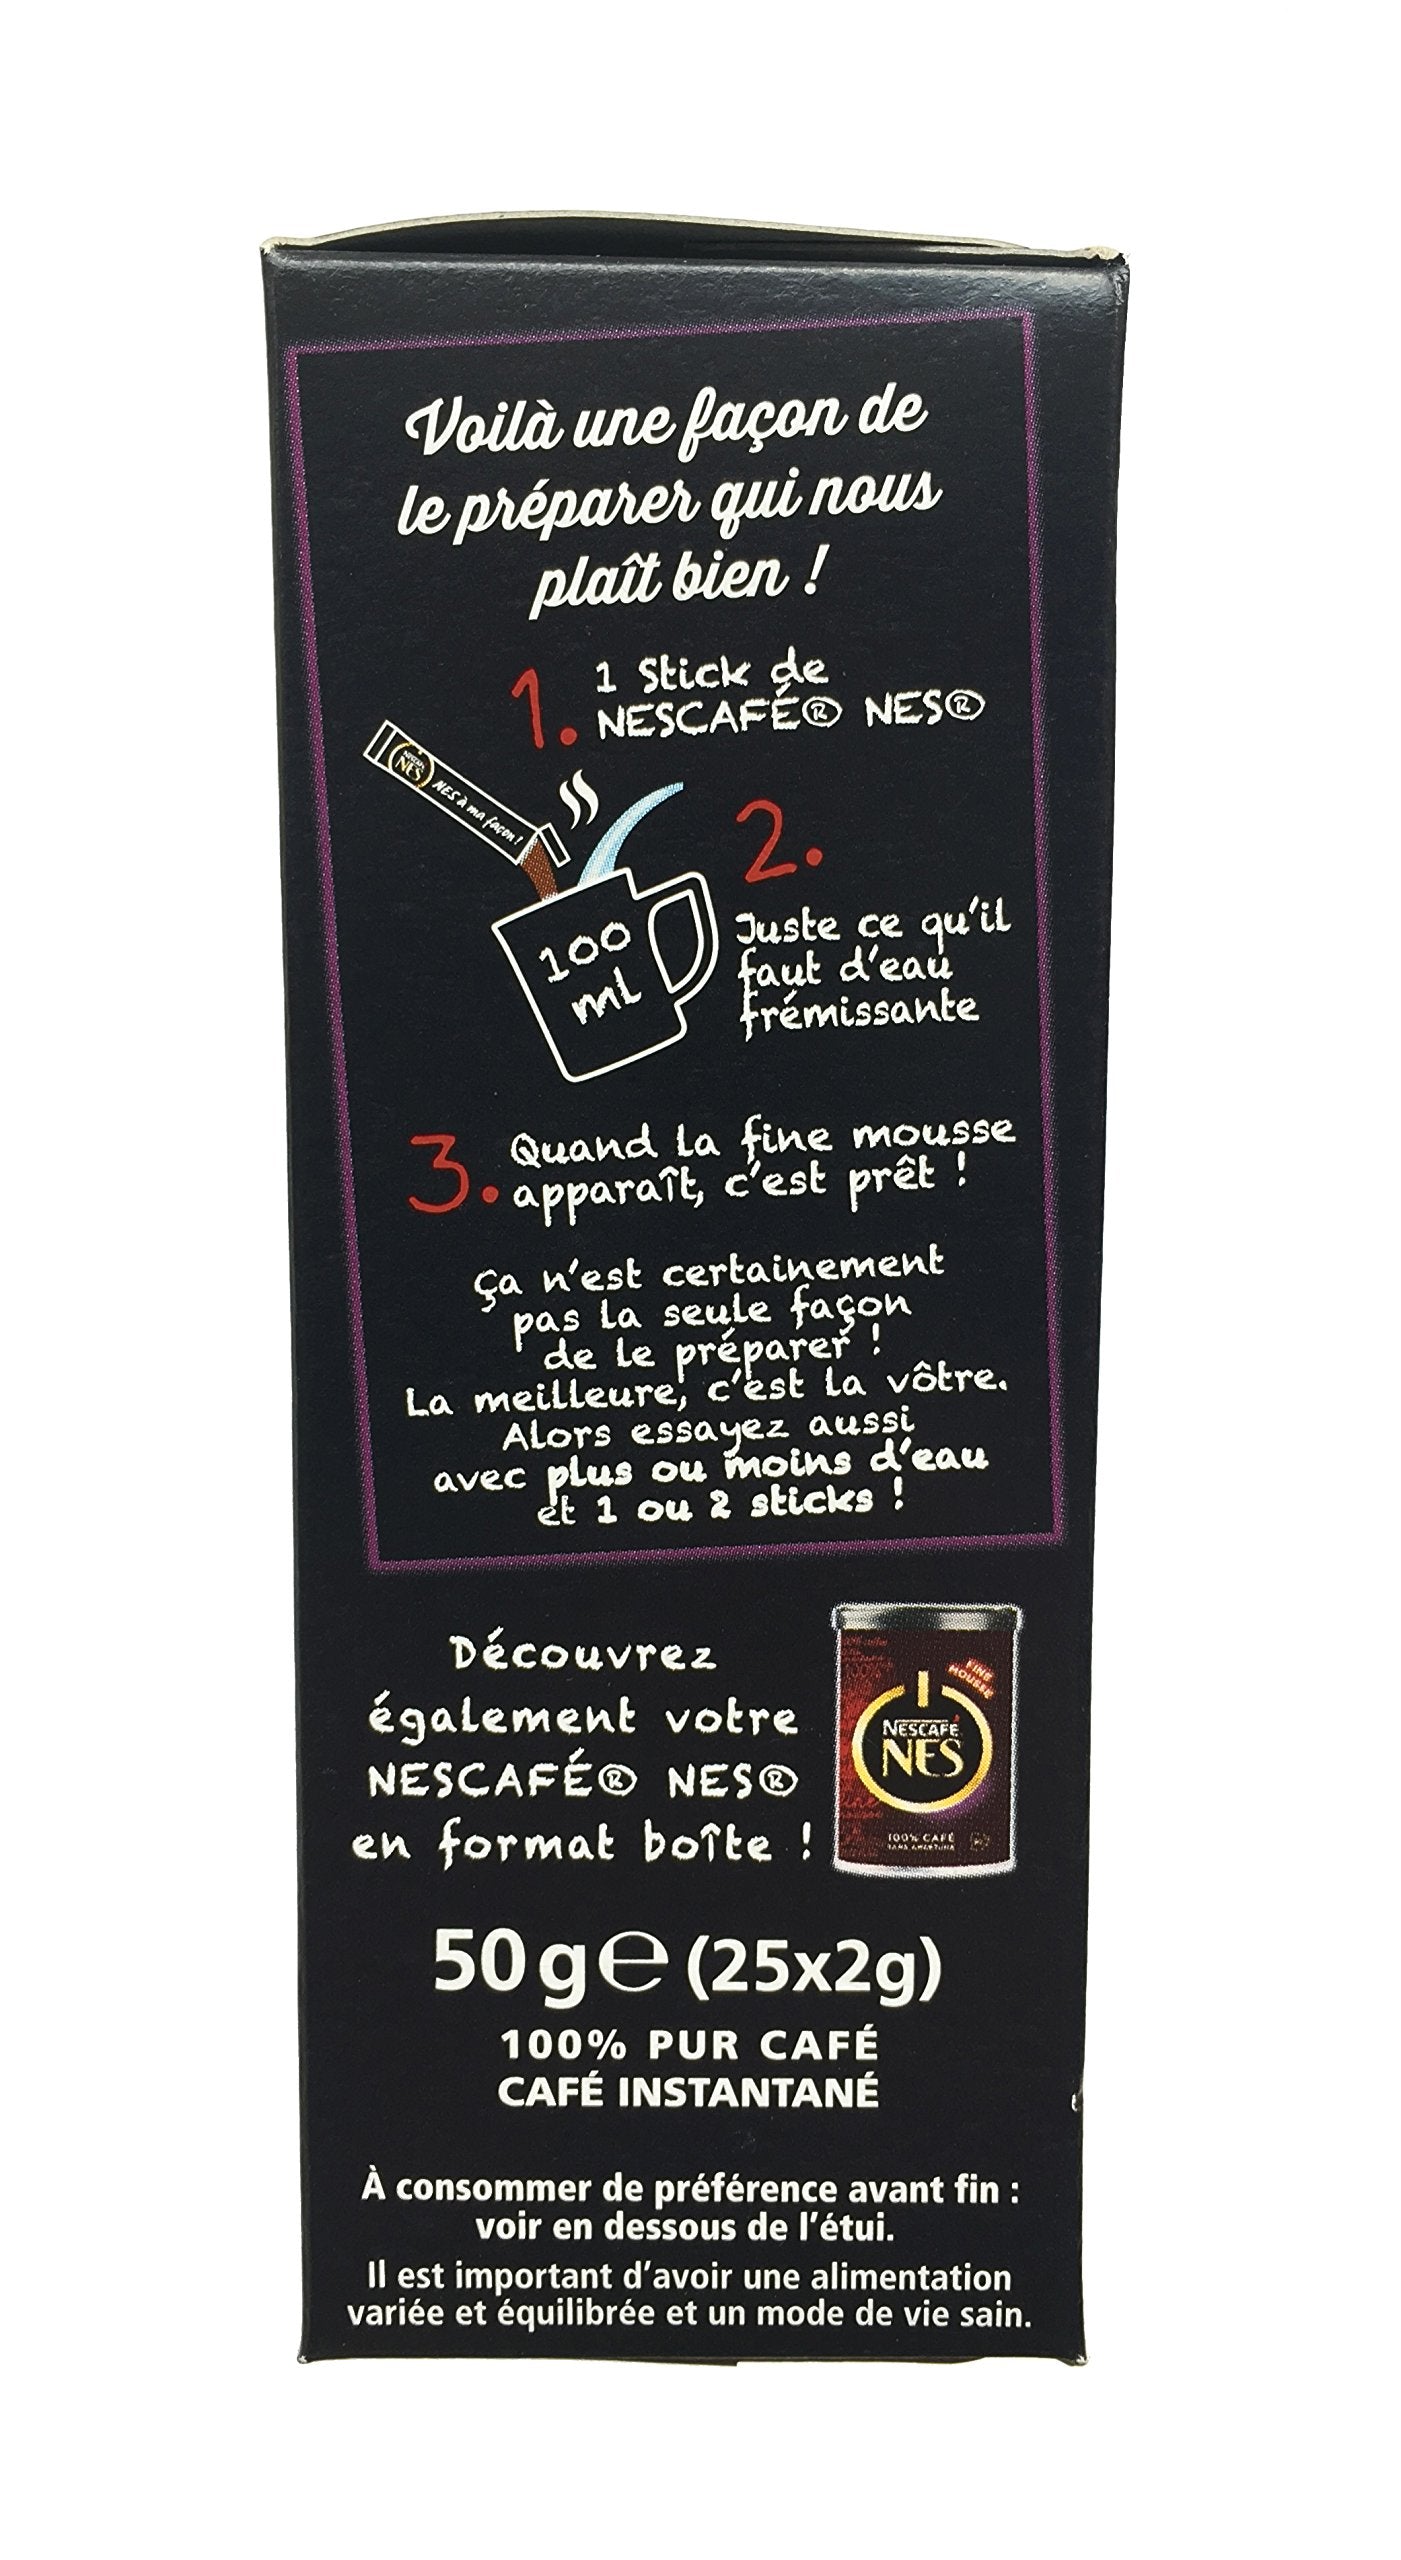 Voilà une façon de
le préparer qui nous
plaît bien !
1. 1 Stick de
NESCAFÉ® NES®
NESCAFÉ
NES
NES à ma façon !
2.
100
ml
Juste ce qu'il
faut d'eau
frémissante
3. Quand la fine mousse
apparaît, c'est prêt !
Ça n'est certainement
pas la seule façon
de le préparer !
La meilleure, c'est la vôtre.
Alors essayez aussi
avec plus ou moins d'eau
et 1 ou 2 sticks !
Découvrez
également votre
NESCAFÉ® NES®
en format boîte !
FINE
MOUSSE
NESCAFÉ
NES
100% CAFÉ
50 g e (25x2g)
100% PUR CAFÉ
CAFÉ INSTANTANÉ
À consommer de préférence avant fin :
voir en dessous de l'étui.
Il est important d'avoir une alimentation
variée et équilibrée et un mode de vie sain.